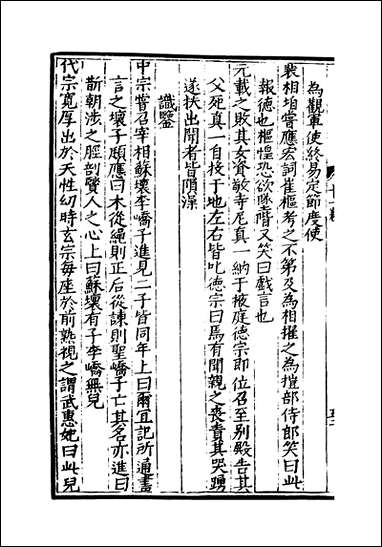 為觀軍使終易定節度使
裴相垍嘗應宏詞崔樞考之不第及為相擢之為禮部侍郎笑曰此
報德也樞惶恐欲墜階又笑曰戲言也
元載之敗其女資敬寺尼真一納于掖庭德宗即位召至别殿告其
父死真一自投于地左右皆叱德宗曰焉有聞親之喪責其哭踴
遂扶出聞者皆隕淚
識鑒
中宗嘗召宰相蘇瓌李嶠子進見二子皆同年上曰爾宜記所通書
言之瓌子頲應曰木從繩則正后從諫則聖嶠子亡其名亦進曰
斮朝涉之脛剖賢人之心上曰蘇瓌有子李嶠無兒
代宗寬厚出於天性幼時玄宗每座於前熟視之謂武惠妃曰此兒